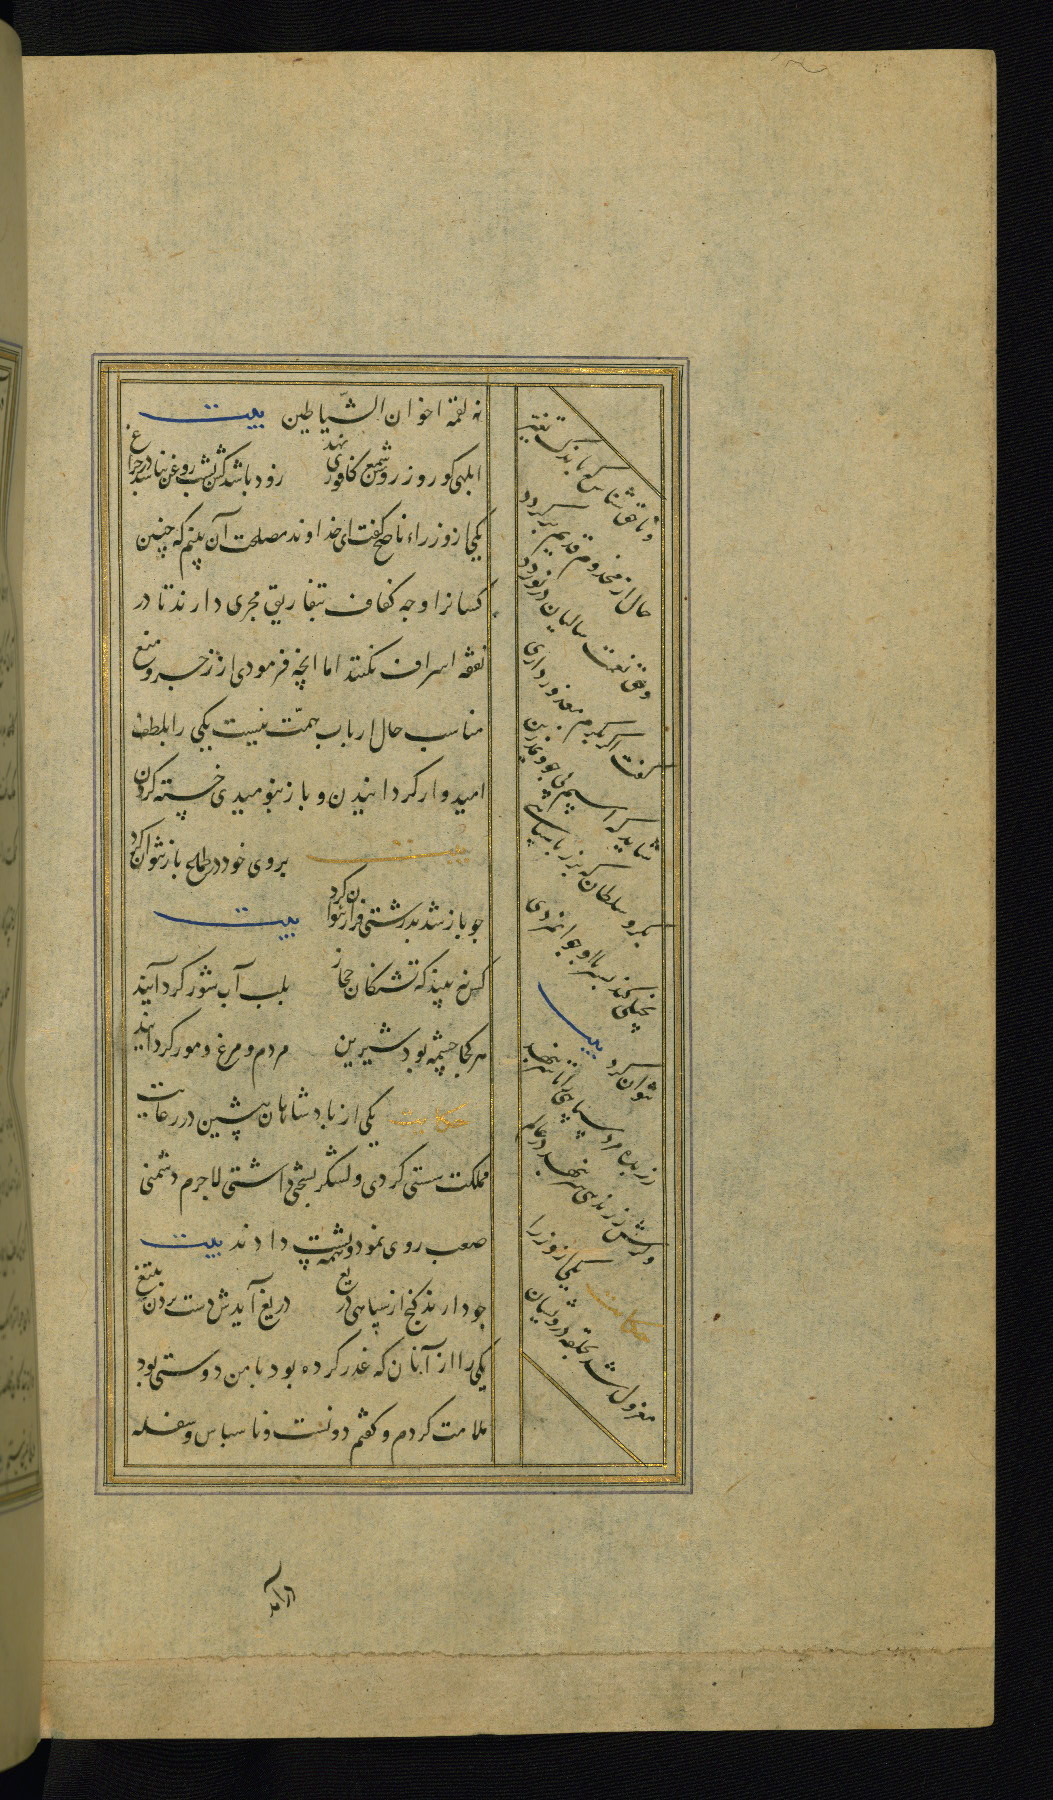 نه لقمه اخوان الشّیاطین بیت
ابلهی کو روز روشن شمع کافوری نهد زود باشد کش بشب روغن نباشد در چراغ
یکی از وزراء ناصح گفت ای خداوند مصلحت آن بینم که چنین
کسانرا وجه کفاف بتفاریق مجری دارند تا در
نفقه اسراف نکنند اما انچه فرمودی از زجر و منع
مناسب حال ارباب همّت نیست یکی را بلطف
امیدوار گردانیدن و باز بنومیدی خسته کردن
بیت بروی خود در طماع باز نتوان کرد
چو باز شد بدرشتی فراز نتوان کرد بیت
کس نه بیند که تشنگان حجاز بلب آب شور گرد آیند
هر کجا چشمه بود شیرین مردم و مرغ و مور گرد آیند
حکایت یکی از پادشاهان پیشین در رعایت
مملکت سستی کردی و لشکر بسختی داشتی لاجرم دشمنی
صعب روی نمود همه پشت دادند بیت
چو دارند گنج از سپاهی دریغ دریغ آیدش دست بردن بتیغ
یکی را از آنان که غدر کرده بود با من دوستی بود
ملامت کردم و گفتم دونست و ناسپاس و سفله
و ناحق شناس که باندک تغیر
حال از مخدوم قدیم برگردد
و حق نعمت سالیان در نوردد
گفت اگر بکرم معذور داری
شاید که اسپم بی جو و نمد زین
بگرو سلطان که بزر با سپاهی
بخیلی کند بسر با او جوانمردی
نتوان کرد بیت
زر بده مرد سپاهی را تا سر بنهد
و گرش زر ندهی سر بنهد در عالم
حکایت یکی از وزرا
معزول شد بحلقه درویشان
درآمد